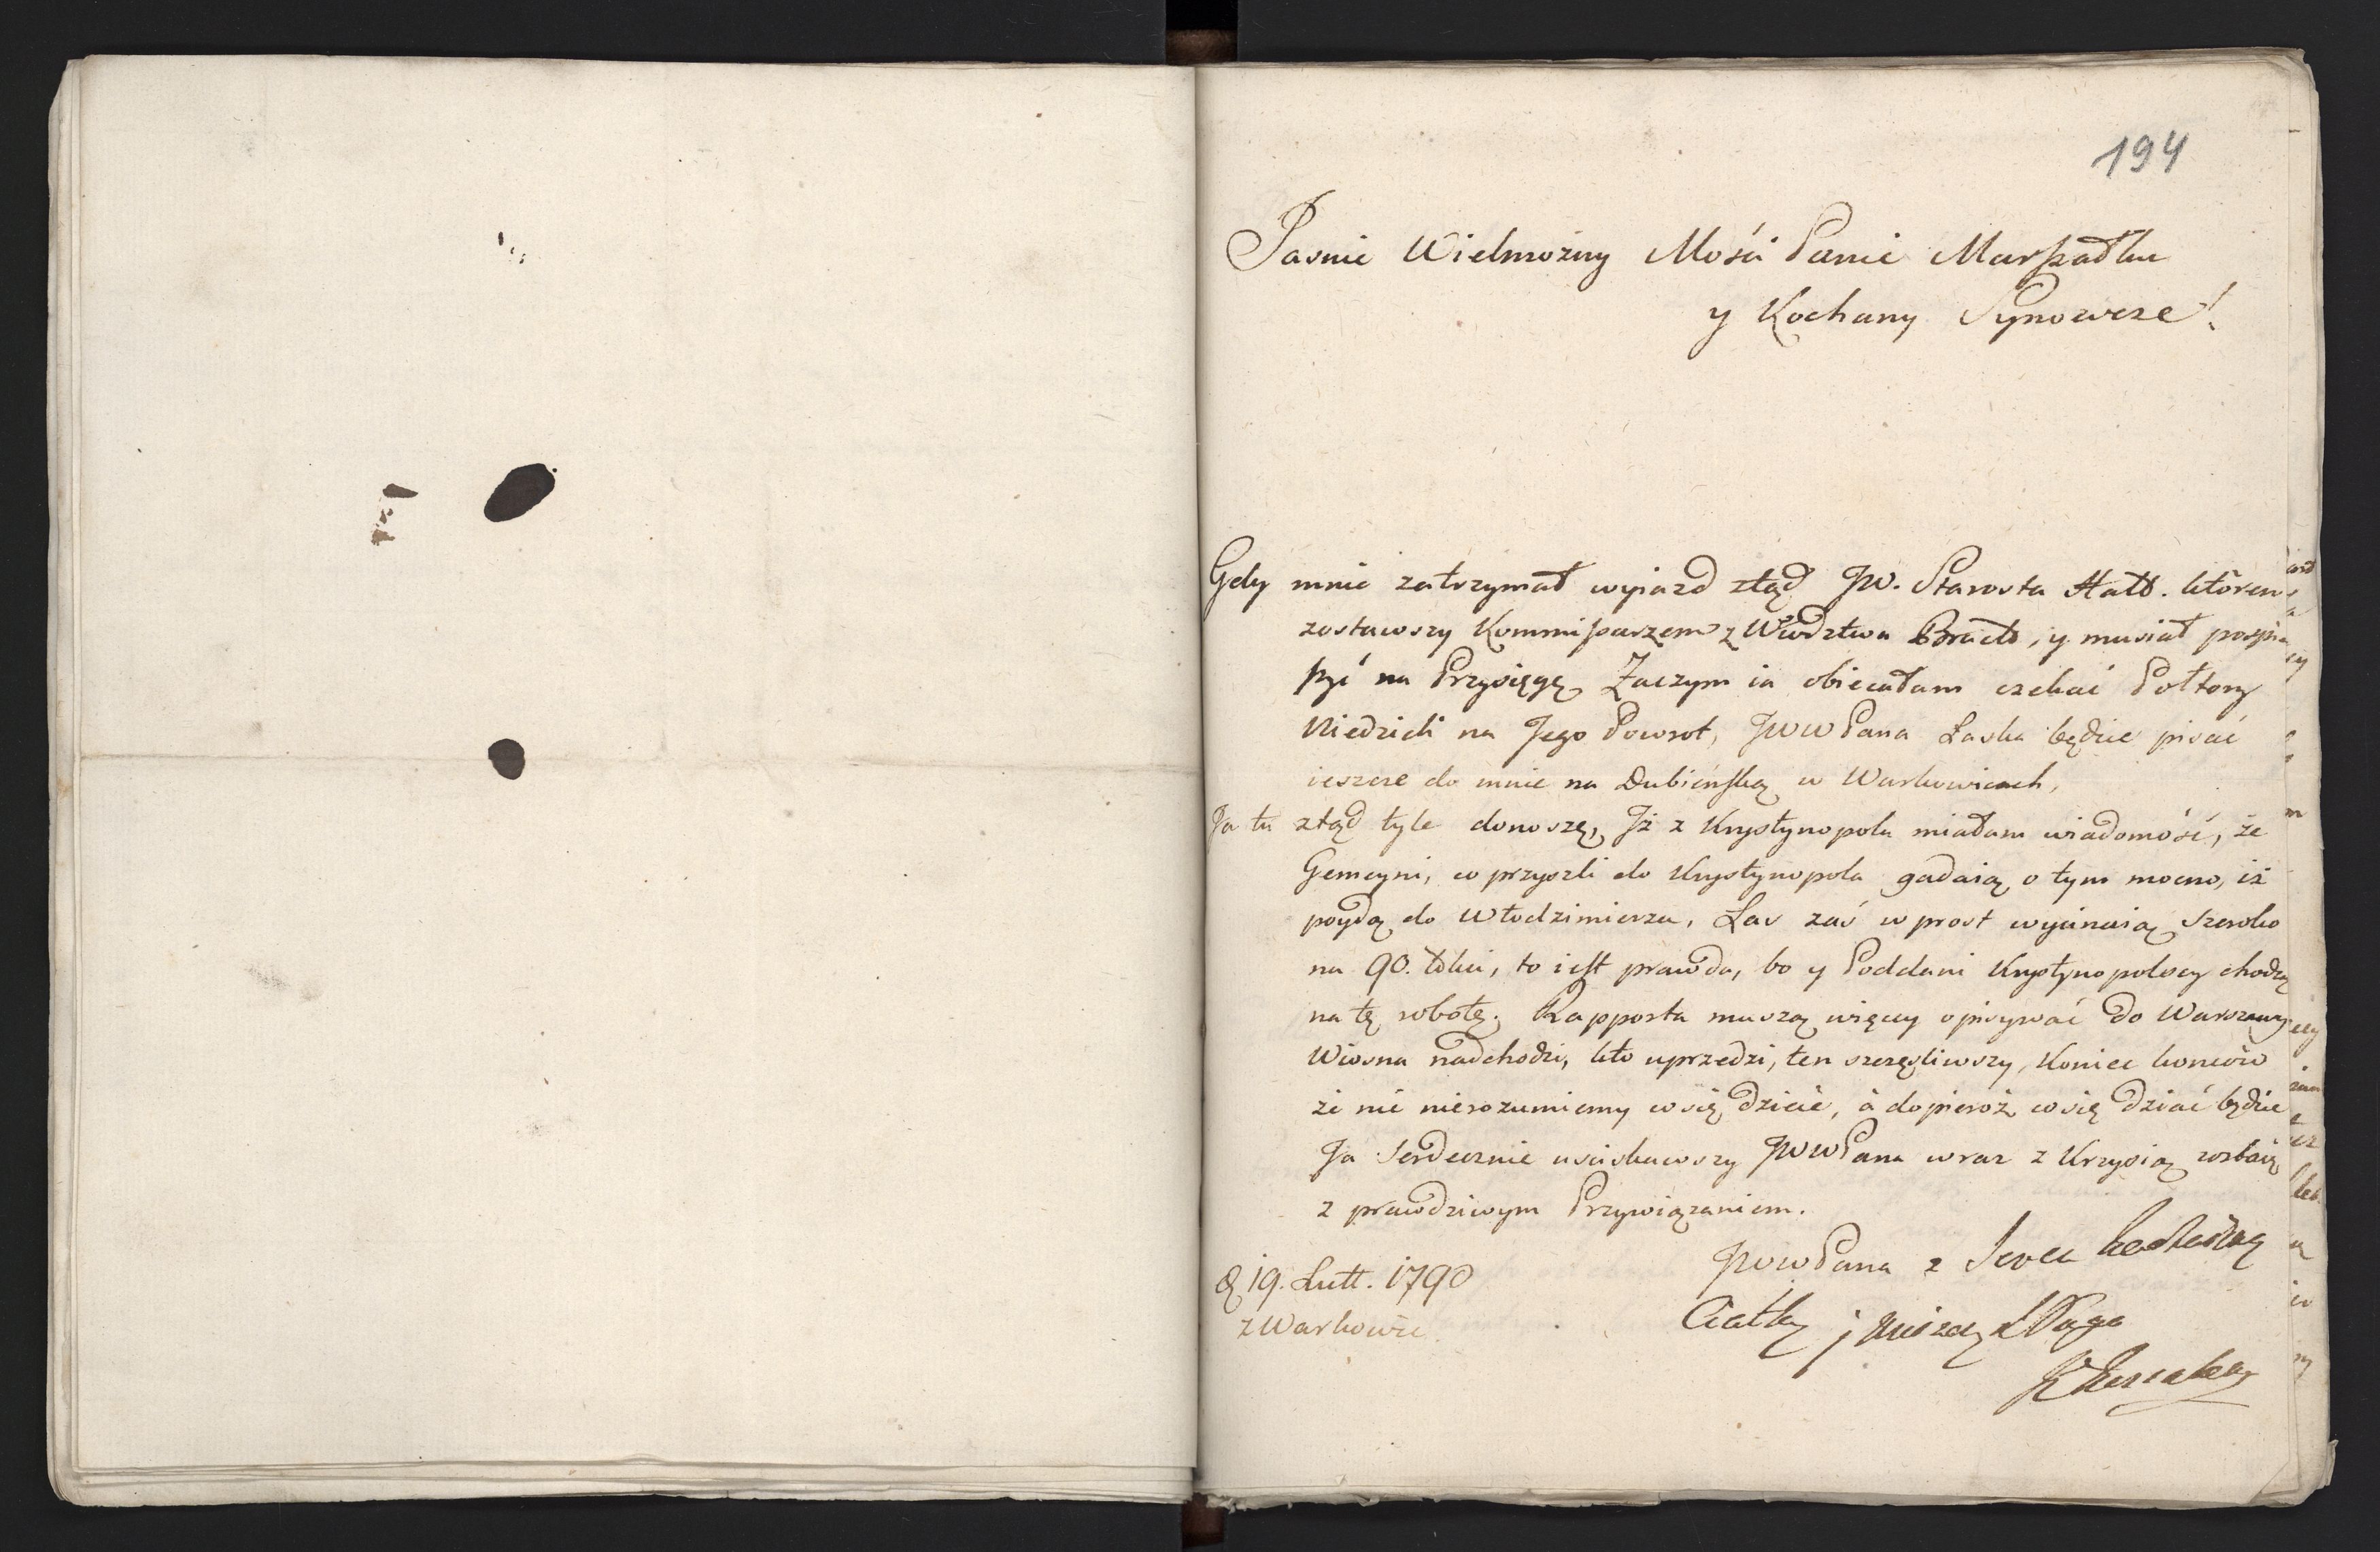 194
Jasnie Wielmożny Mości Panie Marszałku
y Kochany Synowcze!
Gdy mnie zatrzymał wyiazd ztąd JW. Starosta Hałł. ktoren
zostawszy Kommissarzem z Wdztwa Bracł, y musiał pospie
szyć na Przysięgę, Zaczym ia obiecałam czekać Połtory
Niedzieli na Jego Powrot, JWWPana Łaska będzie pisać
ieszcze do mnie na Dubieńską w Warkowicach,
Ja tu ztąd tyle donoszę, Jż z Krystynopola miałam wiadomość, że
Gemeyni, co przyszli do Krystynopola gadaią o tym mocno, iż
poydą do Włodzimierza, Las zaś w prost wycinaią szeroko
na 90. łokci, to iest prawda, bo y Poddani Krystynopolscy chodzą
na tę robotę. Rapporta muszą więcey opisywać do Warszawy
Wiosna nadchodzi, kto uprzedzi, ten szczęśliwszy, Koniec koncow
że nic nierozumiemy co się dzieie, à dopieroż co się dziać będzie
Ja Serdecznie usciskawszy JWWPana wraz z Krzysią zostaię
z prawdziwym Przywiązaniem.
JWWPana z Serca kochaiącą
Ciotką j nizszą Sługą
D 19. Lutt. 1790
z Warkowic